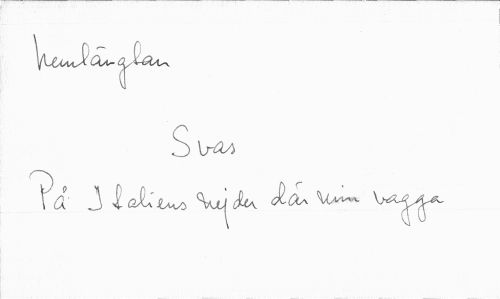 Hemlängtan
Svas
På Italiens nejder där min vagga